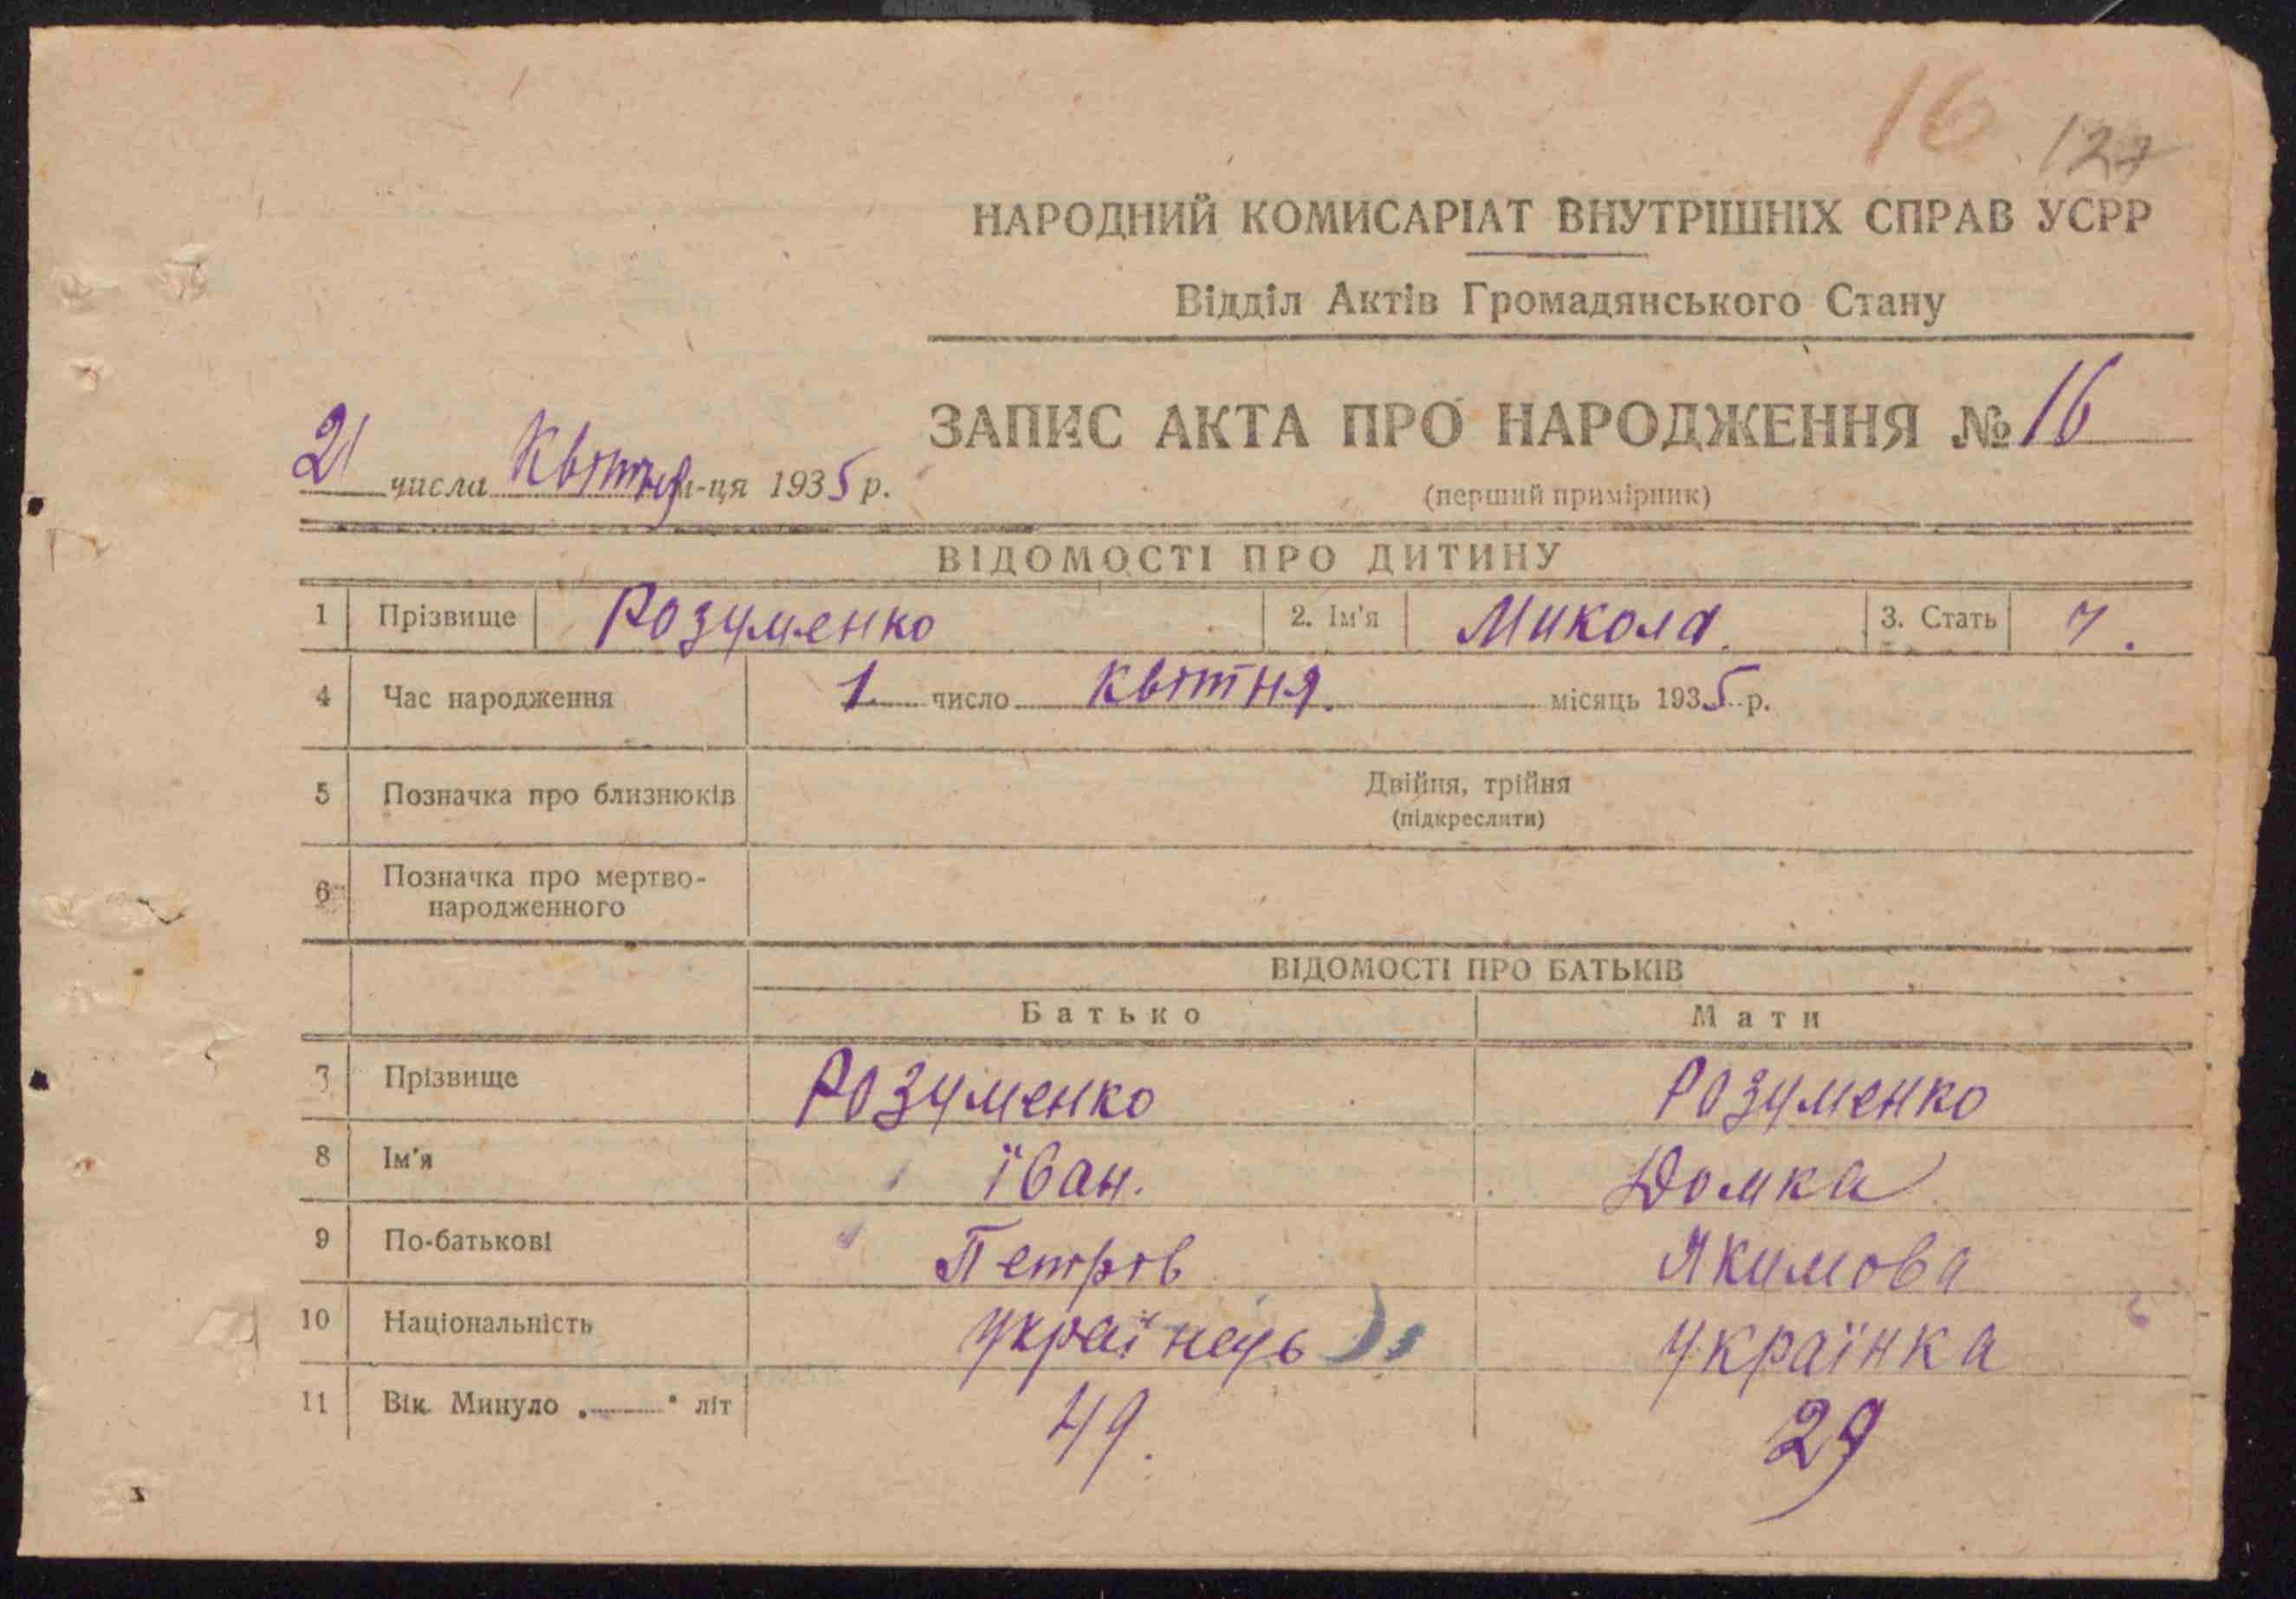 16 127
НАРОДНИЙ КОМИСАРІАТ ВНУТРІШНІХ СПРАВ УСРР
Відділ Актів Громадянського Стану
ЗАПИС АКТА ПРО НАРОДЖЕННЯ № 16
21 числа Квітня м-ця 1935 р.
(перший примірник)
ВІДОМОСТІ ПРО ДИТИНУ
1 Прізвище Розуменко 2. Ім'я Микола. 3. Стать ч.
4 Час народження 1 число квітня. місяць 1935 р.
5 Позначка про близнюків Двійня, трійня
(підкреслити)
6 Позначка про мертво-
народженного
ВІДОМОСТІ ПРО БАТЬКІВ
Батько Мати
7 Прізвище Розуменко Розуменко
8 Ім'я Їван. Домка
9 По-батькові Петрів Якимова
10 Національність українець українка
11 Вік. Минуло „ “ літ 49. 29